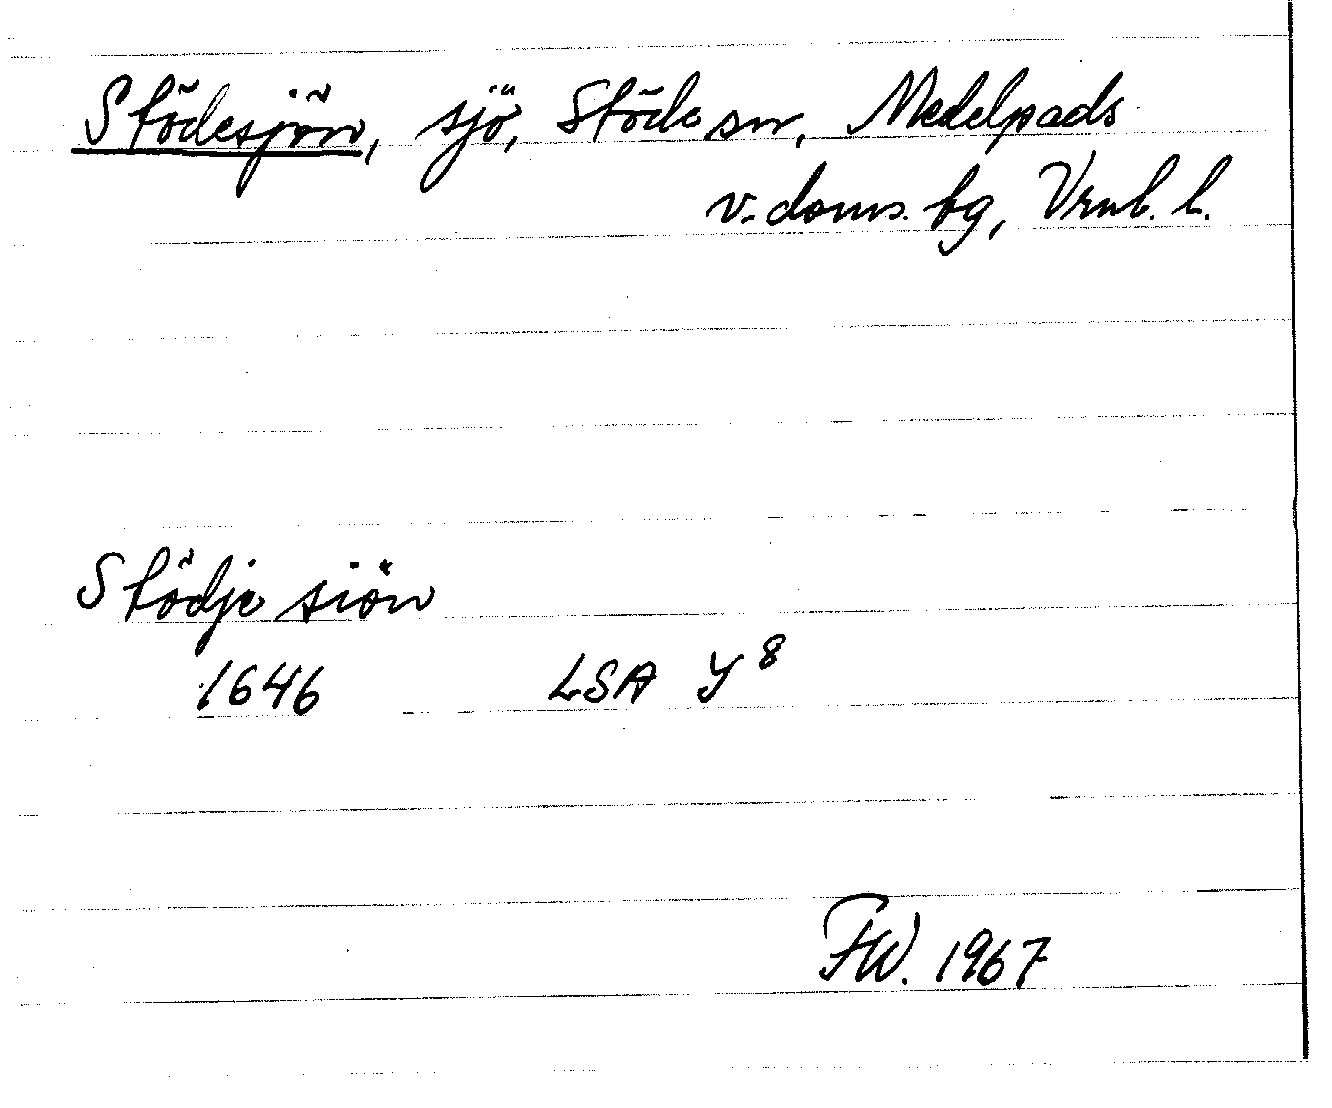 Stödesjön, sjö, Stöde sn, Medelpads
v. doms. bg, Vrnl. l.
Stödje siön
1646 LSA Y 8
FW. 1967